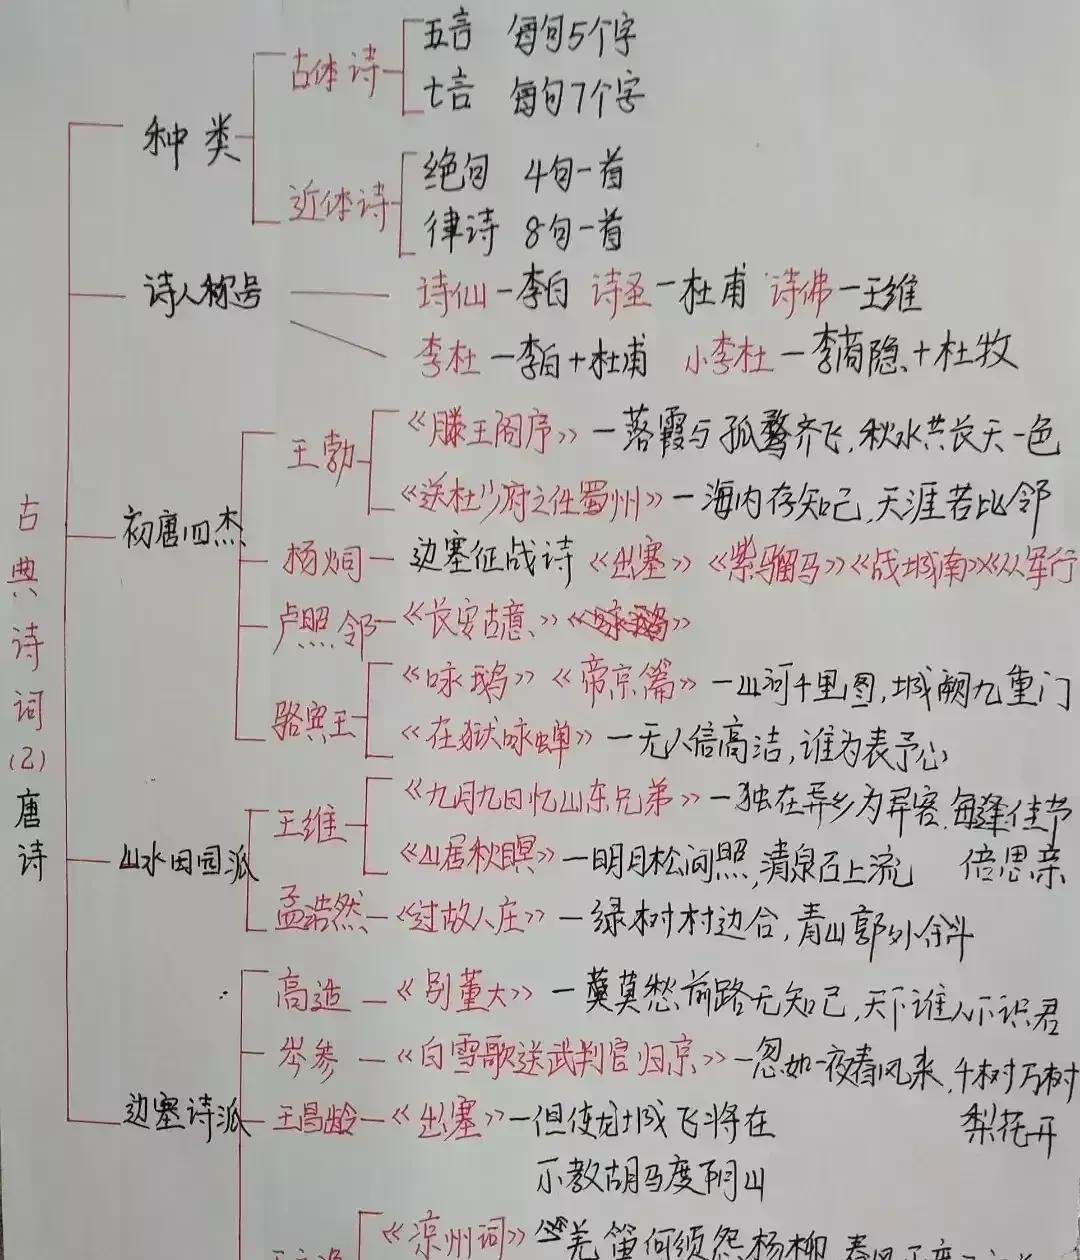 古典诗词(2)唐诗
种类
古体诗
五言 每句5个字
七言 每句7个字
近体诗
绝句 4句一首
律诗 8句一首
诗人称号
诗仙一李白 诗圣一杜甫 诗佛一王维
李杜一李白+杜甫 小李杜一李商隐+杜牧
初唐四杰
王勃
《滕王阁序》一落霞与孤鹜齐飞,秋水共长天一色
《送杜少府之任蜀州》一海内存知己,天涯若比邻
杨炯一边塞征战诗《出塞》《紫骝马》《战城南》《从军行
卢照邻一《长安古意》《咏鹅》
骆宾王
《咏鹅》《帝京篇》一山河千里图,城阙九重门
《在狱咏蝉》一无人信高洁,谁为表予心
山水田园派
王维
《九月九日忆山东兄弟》一独在异乡为异客,每逢佳节
倍思亲
《山居秋暝》一明月松间照,清泉石上流
孟浩然一《过故人庄》一绿树村边合,青山郭外斜
边塞诗派
高适一《别董大》一莫愁前路无知己,天下谁人不识君
岑参一《白雪歌送武判官归京》一忽如一夜春风来,千树万树
梨花开
王昌龄一《出塞》一但使龙城飞将在
不教胡马度阴山
《凉州词》羌笛何须怨杨柳,春风不度